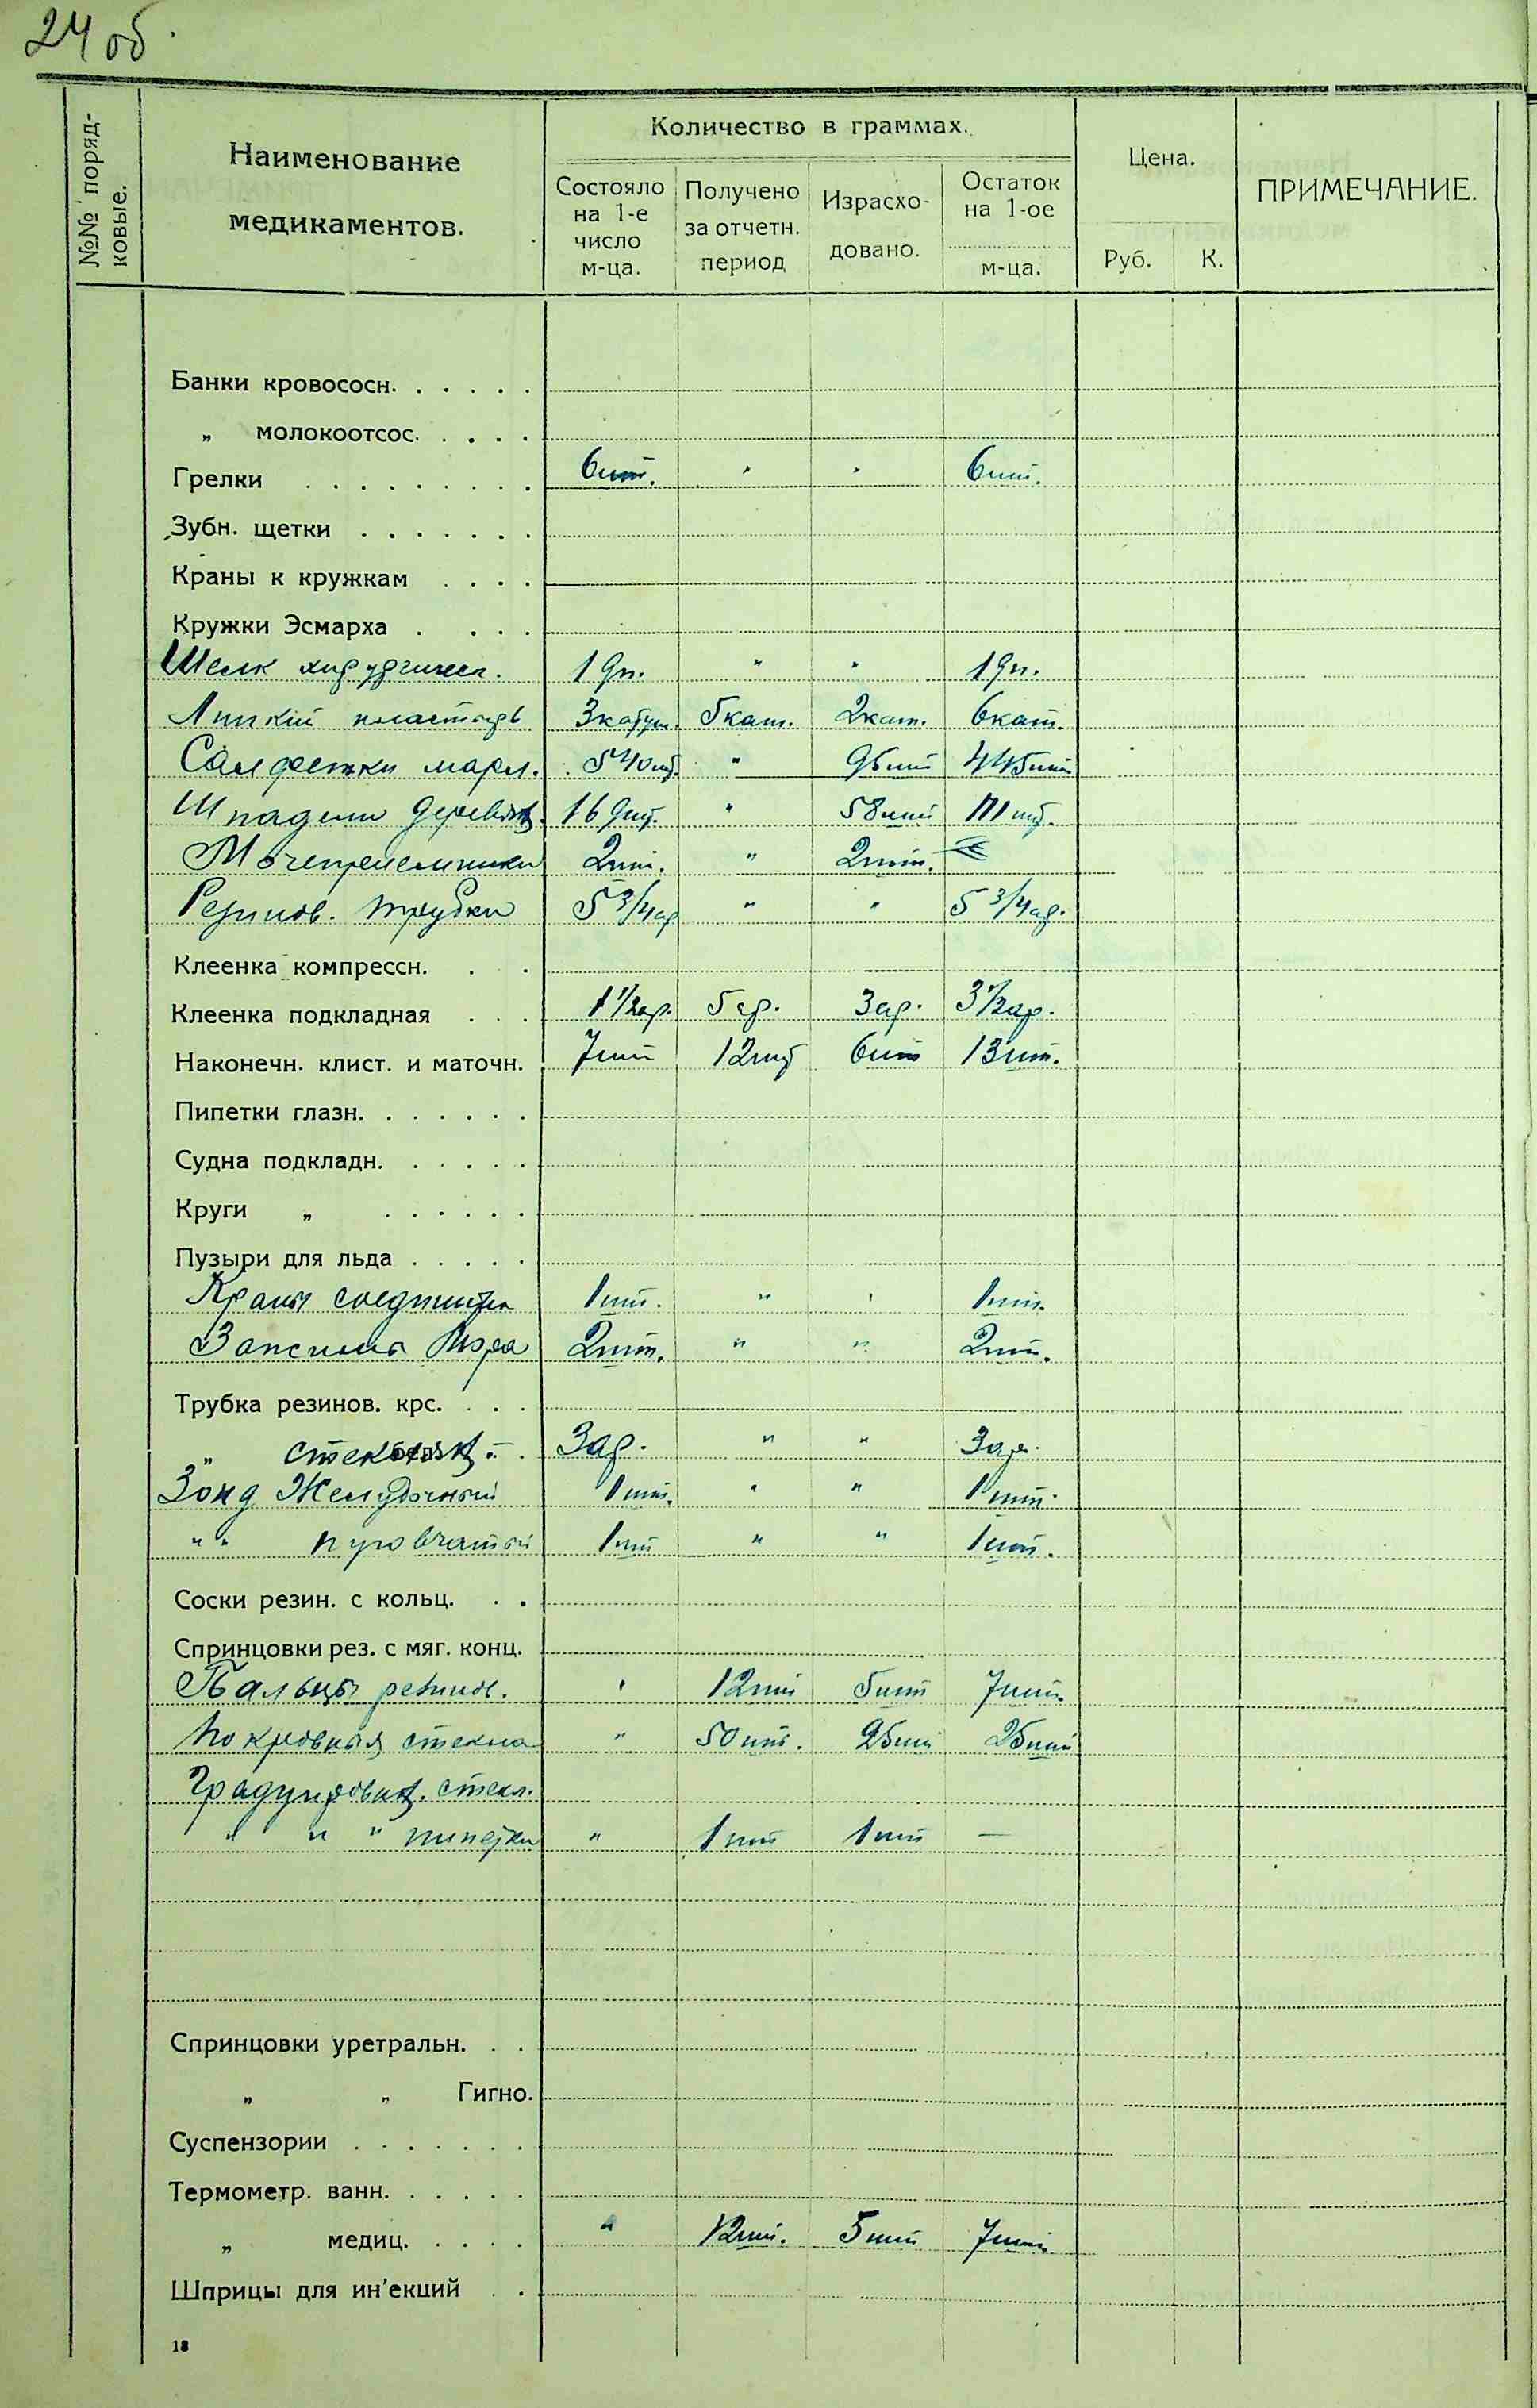 24 об.
№№ поряд-
ковые.
Наименование
медикаментов.
Количество в граммах.
Состояло
на 1-е
число
м-ца.
Получено
за отчетн.
период
Израсхо-
довано.
Остаток
на 1-ое
м-ца.
Цена.
Руб. К.
ПРИМЕЧАНИЕ.
Банки кровососн. . . . . .
„ молокоотсос. . . . .
Грелки . . . . . . . . . 6 шт. " " 6 шт.
Зубн. щетки . . . . . . .
Краны к кружкам . . . .
Кружки Эсмарха . . . .
Шелк хирургическ. 1 " " 1
Липкий пластырь 3 катуш. 5 кат. 2 кат. 6 кат.
Салфетки марл. 540 шт. " 95 шт 445 шт
Шпадели деревян. 169 шт. " 58 шт 111 шт.
Мочеприемники 2 шт. " 2 шт.
Резинов. трубки 5 3/4 ар " " 5 3/4 ар.
Клеенка компрессн. . .
Клеенка подкладная . . . 1 1/2 ар. 5 ар. 3 ар. 3 1/2 ар.
Наконечн. клист. и маточн. 7 шт 12 шт 6 шт 13 шт.
Пипетки глазн. . . . . . .
Судна подкладн. . . . . .
Круги „ . . . . . .
Пузыри для льда . . . . .
Краны соединител 1 шт. " " 1 шт.
Зажимы 2 шт. " " 2 шт.
Трубка резинов. крс. . . .
„ стеклян. . 3 ар. " " 3 ар.
Зонд Желудочный 1 шт. " " 1 шт.
" " пуговчатый 1 шт " " 1 шт.
Соски резин. с кольц. . .
Спринцовки рез. с мяг. конц.
Пальцы резинов. " 12 шт 5 шт 7 шт.
Покровныя стекла " 50 шт. 25 шт 25 шт
Градуирован. стекл.
" " " пипетки " 1 шт 1 шт —
Спринцовки уретральн. . .
„ „ Гигно.
Суспензории . . . . . . .
Термометр. ванн. . . . . .
„ медиц. . . . . " 12 шт. 5 шт 7 шт.
Шприцы для ин'екций . .
18